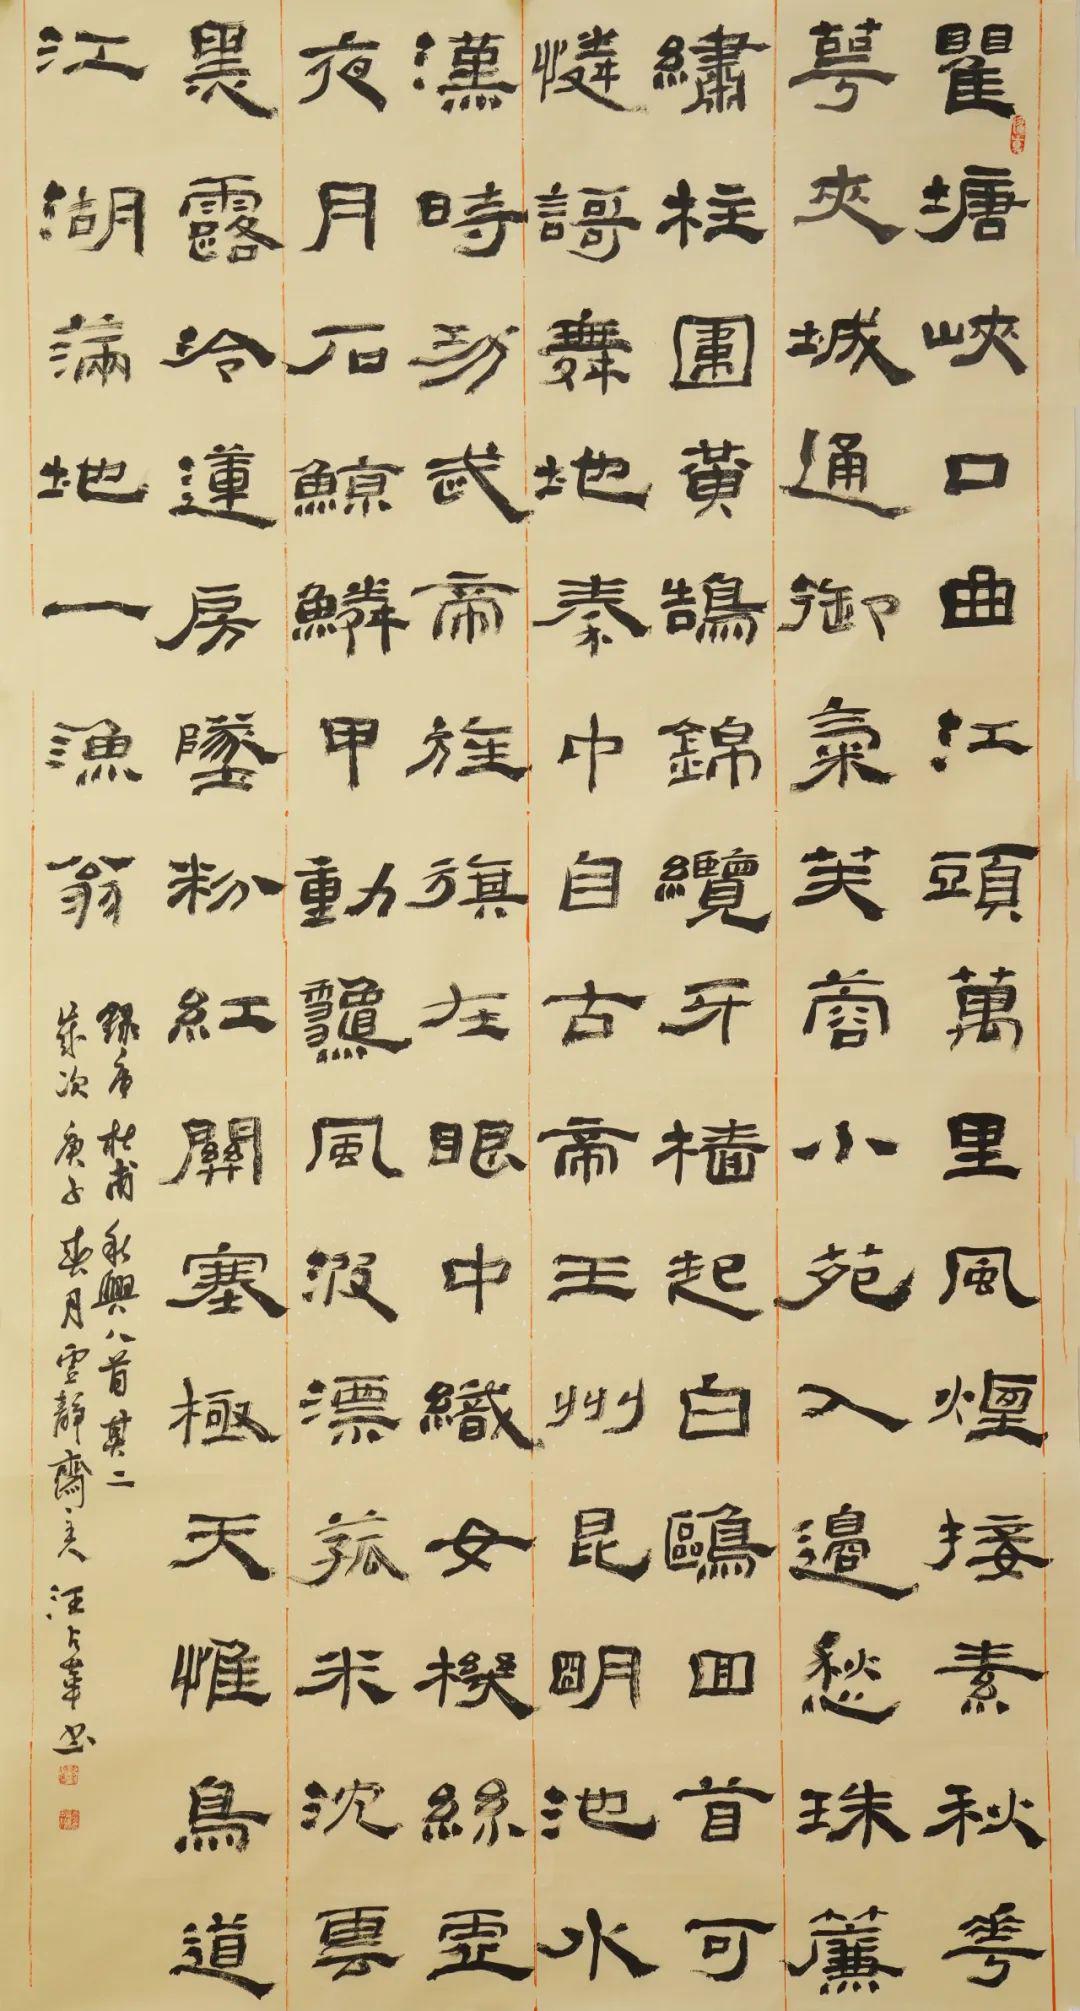 瞿塘峽口曲江頭萬里風煙接素秋華
萼夾城通御氣芙蓉小苑入邊愁珠簾
繡柱圍黃鵠錦纜牙檣起白鷗囬首可
憐謌舞地秦中自古帝王州昆朙池水
漢時功武帝旌旗在眼中織女機絲虛
夜月石鯨鱗甲動龝風波漂菰米沈雲
黑露冷蓮房墜粉紅關塞極天惟鳥道
江湖滿地一漁翁
錄唐杜甫秋興八首其二
歲次庚子春月靜齋主人汪占書